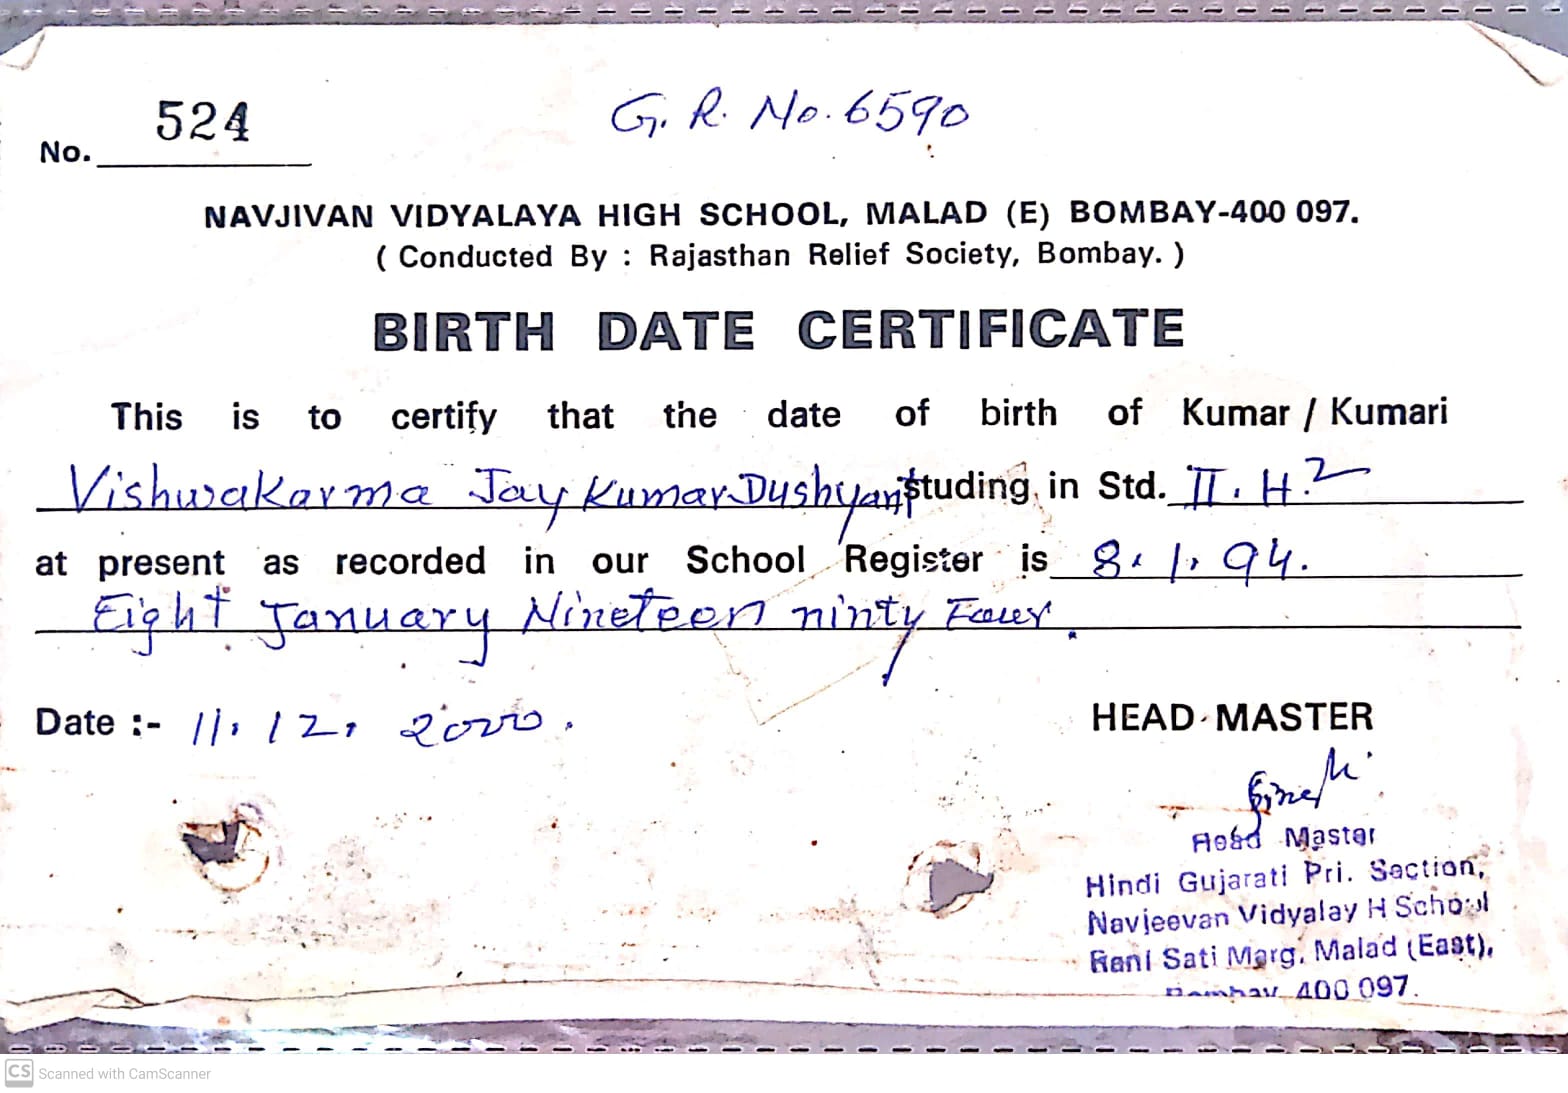 No. 524
G. R. No. 6590
NAVJIVAN VIDYALAYA HIGH SCHOOL, MALAD (E) BOMBAY-400 097.
( Conducted By : Rajasthan Relief Society, Bombay. )
BIRTH DATE CERTIFICATE
This is to certify that the date of birth of Kumar / Kumari
Vishwakarma Jay Kumar Dushyant studing in Std. II. H.2
at present as recorded in our School Register is 8.1.94.
Eight January Nineteen ninty Four.
Date :- 11.12.2000.
HEAD MASTER
Head Master
Hindi Gujarati Pri. Section,
Navjeevan Vidyalay H School
Rani Sati Marg, Malad (East),
Bombay 400 097.
CS Scanned with CamScanner